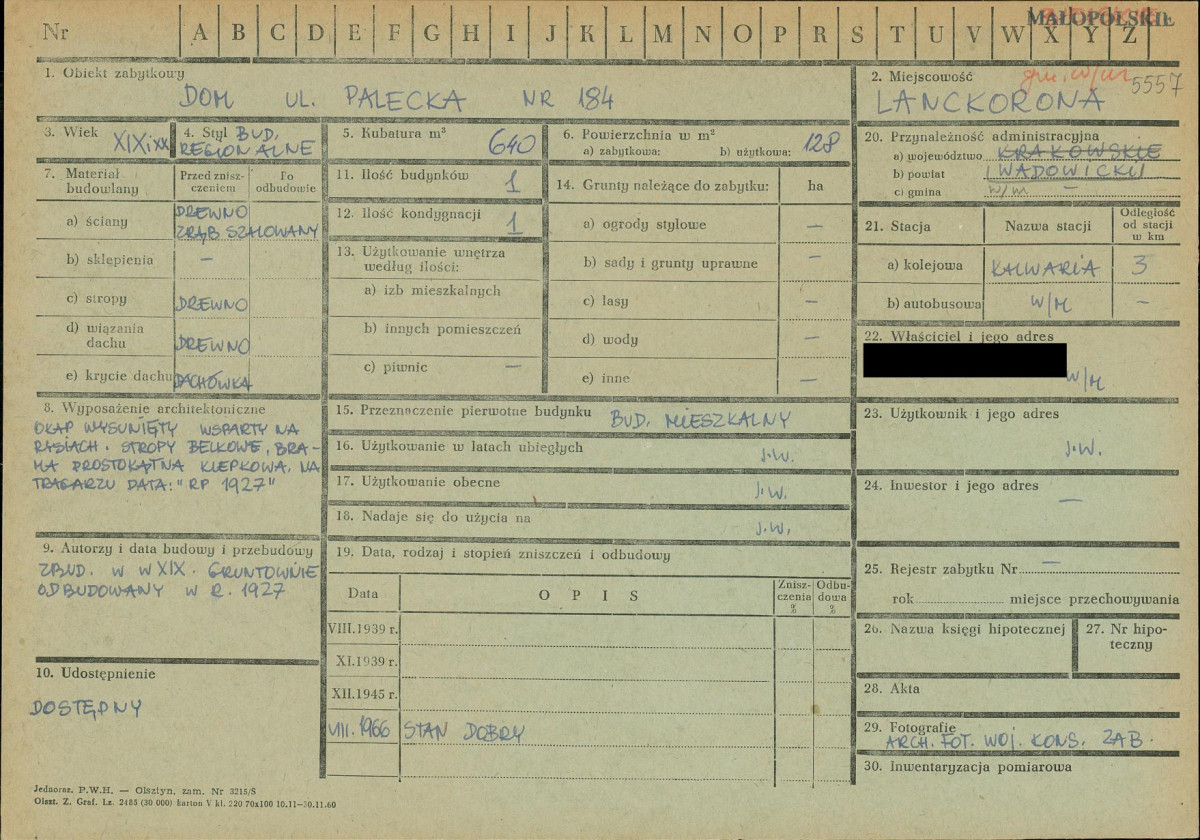 Nr A B C D E F G H I J K L M N O P R S T U V W X Y Z
MAŁOPOLSKIE
1. Obiekt zabytkowy
DOM UL. PALECKA NR 184
2. Miejscowość
gm. w/m 5557
LANCKORONA
3. Wiek
XIX i XX
4. Styl BUD.
REGIONALNE
5. Kubatura m³
640
6. Powierzchnia w m²
a) zabytkowa: b) użytkowa: 128
7. Materiał budowlany
Przed zniszczeniem
Po odbudowie
a) ściany DREWNO
ZRĄB SZALOWANY
b) sklepienia —
c) stropy DREWNO
d) wiązania
dachu DREWNO
e) krycie dachu DACHÓWKA
8. Wyposażenie architektoniczne
OKAP WYSUNIĘTY WSPARTY NA
RYSIACH. STROPY BELKOWE, BRA-
MA PROSTOKĄTNA KLEPKOWA. NA
TRAGARZU DATA: "RP 1927"
9. Autorzy i data budowy i przebudowy
ZBUD. W W XIX. GRUNTOWNIE
ODBUDOWANY W R. 1927
10. Udostępnienie
DOSTĘPNY
11. Ilość budynków 1
12. Ilość kondygnacji 1
13. Użytkowanie wnętrza
według ilości:
a) izb mieszkalnych
b) innych pomieszczeń
c) piwnic —
14. Grunty należące do zabytku: ha
a) ogrody stylowe —
b) sady i grunty uprawne —
c) lasy —
d) wody —
e) inne —
15. Przeznaczenie pierwotne budynku BUD. MIESZKALNY
16. Użytkowanie w latach ubiegłych J.W.
17. Użytkowanie obecne J.W.
18. Nadaje się do użycia na J.W.
19. Data, rodzaj i stopień zniszczeń i odbudowy
Data
O P I S
Zniszczenia %
Odbudowa %
VIII.1939 r.
XI.1939 r.
XII.1945 r.
VIII.1966 STAN DOBRY
20. Przynależność administracyjna
a) województwo KRAKOWSKIE
b) powiat WADOWICKI
c) gmina w/m —
21. Stacja
Nazwa stacji
Odległość
od stacji
w km
a) kolejowa KALWARIA 3
b) autobusowa W/M —
22. Właściciel i jego adres
W/M
23. Użytkownik i jego adres
J.W.
24. Inwestor i jego adres
—
25. Rejestr zabytku Nr —
rok miejsce przechowywania
26. Nazwa księgi hipotecznej
27. Nr hipo-
teczny
28. Akta
29. Fotografie
ARCH. FOT. WOJ. KONS. ZAB.
30. Inwentaryzacja pomiarowa
Jednoraz. P.W.H. — Olsztyn, zam. Nr 3215/S
Olszt. Z. Graf. Lz. 2485 (30 000) karton V kl. 220 70x100 10.11—30.11.60